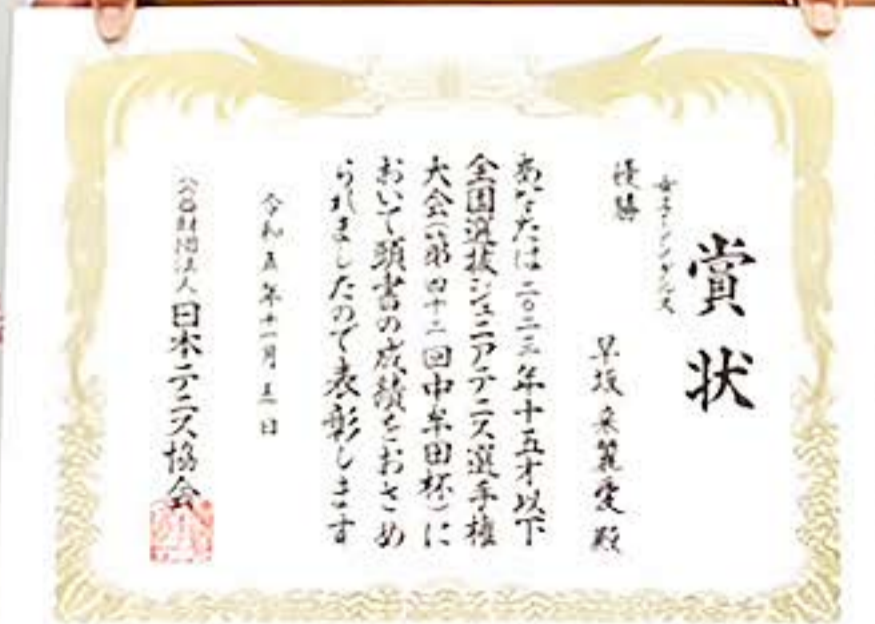 賞状
女子シングルス
優勝
早坂来麗愛殿
あなたは二〇二三年十五才以下
全国選抜ジュニアテニス選手権
大会(第四十二回中牟田杯)に
おいて頭書の成績をおさめ
られましたので表彰します
令和五年十一月五日
公益財団法人日本テニス協会